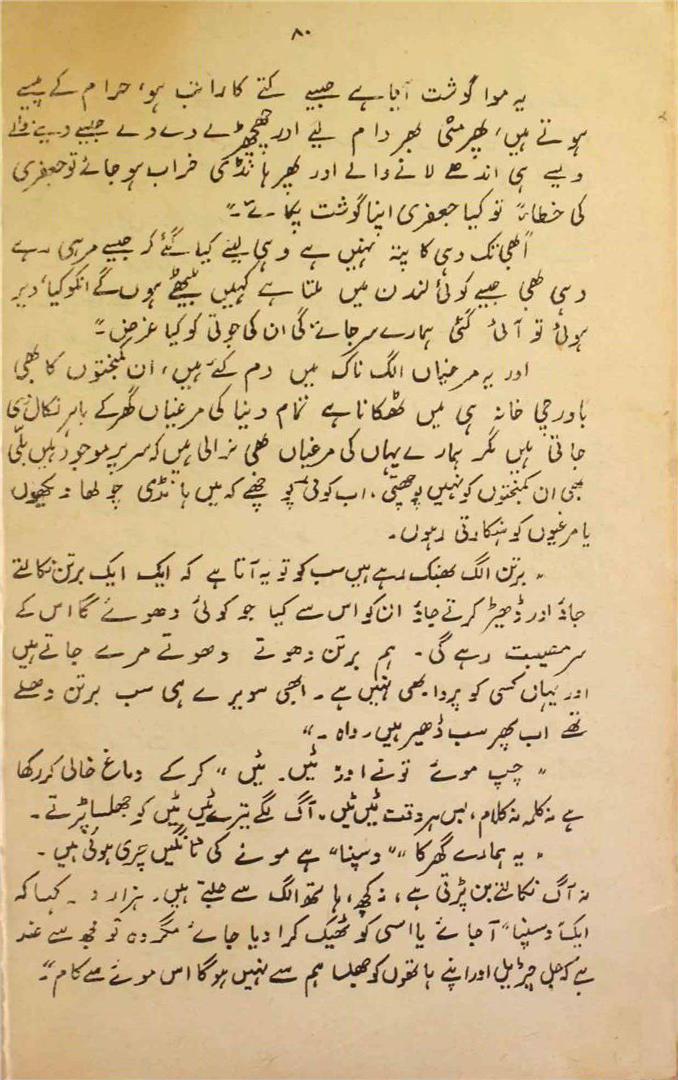 ۸۰
یہ موا گوشت آیا ہے جیسے کتے کا راتب ہو، حرام کے پیسے
ہوتے ہیں، پھر مٹھی بھر دام لیے اور چھیچھڑے دے دے جیسے دینے والے
ویسے ہی اندھے لانے والے اور پھر ہانڈی خراب ہو جائے تو جعفری
کی خطا۔ تو کیا جعفری اپنا گوشت پکا دے۔"
ابھی تک دہی کا پتہ نہیں ہے دہی لینے کیا گئے کہ جیسے مر ہی رہے
دہی بھی جیسے کوئی لندن میں ملتا ہے کہیں بیٹھے ہوں گے انکو کیا، دیر
ہوئی تو آئی گئی ہمارے سر جائے گی ان کی جوتی کو کیا غرض۔"
اور یہ مرغیاں الگ ناک میں دم کئے ہیں، ان کمبختوں کا بھی
باورچی خانہ ہی میں ٹھکانا ہے تمام دنیا کی مرغیاں گھر کے باہر نکال دی
جاتی ہیں مگر ہمارے یہاں کی مرغیاں بھی نرالی ہیں کہ سر پر موجود ہیں بلی
بھی ان کمبختوں کو نہیں پوچھتی، اب کوئی پوچھے کہ میں ہانڈی چولھا دیکھوں
یا مرغیوں کو ہنکاتی رہوں۔
" برتن الگ بھنک رہے ہیں سب کو تو یہ آتا ہے کہ ایک ایک برتن نکالتے
جاؤ اور ڈھیڑ کرتے جاؤ ان کو اس سے کیا جو کوئی دھوئے گا اس کے
سر مصیبت رہے گی۔ ہم برتن دھوتے دھوتے مرے جاتے ہیں
اور یہاں کسی کو پروا بھی نہیں ہے۔ ابھی سویرے ہی سب برتن دھلے
تھے اب پھر سب ڈھیر ہیں۔ واہ۔"
" چپ موئے تونے اور ٹیں۔ ٹیں " کر کے دماغ خالی کر رکھا
ہے نہ کلمہ نہ کلام، بس ہر وقت ٹیں ٹیں۔ آگ لگے تیرے ٹیں ٹیں کو جھلسا پڑتے۔
" یہ ہمارے گھر کا "دسپنا" ہے موئے کی ٹانگیں چری ہوئی ہیں۔
نہ آگ نکالتے بن پڑتی ہے، نہ کچھ، ہاتھ الگ سے جلتے ہیں۔ ہزار د۔ کہا کہ
ایک دسپنا آ جائے یا اسی کو ٹھیک کرا دیا جائے مگر وہ تو مجھ سے ضد
ہے کہ جل چڑیل اور اپنے ہاتھوں کو جھلسا ہم سے نہیں ہوگا اس موئے سے کام۔"